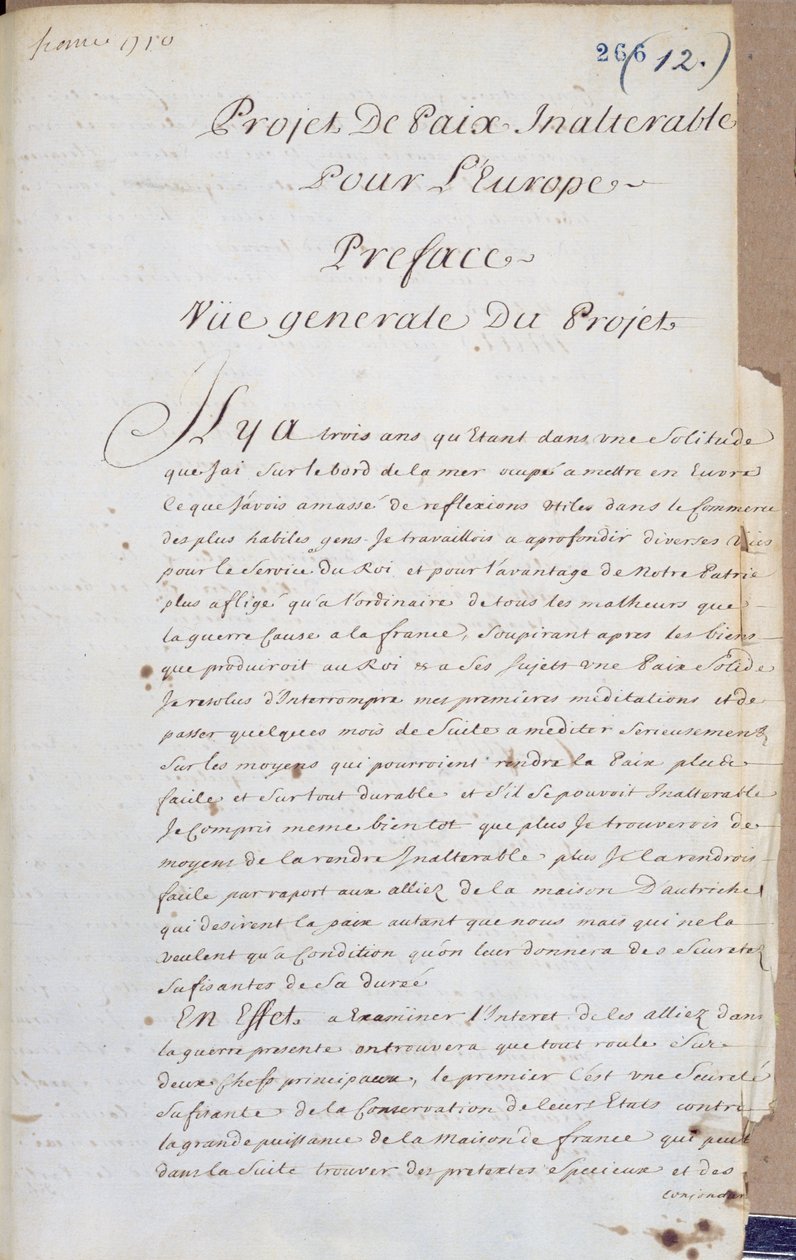 france 1750
266 (12.)
Projet De Paix Inalterable
Pour L'Europe
Preface
Vüe generale Du Projet
Il y a trois ans qu'Etant dans vne Solitude
que J'ai Sur le bord de la mer ocupé a mettre en Euvre
ce que J'avois amassé de reflexions vtiles dans le Commerce
des plus habiles gens. Je travaillois a aprofondir diverses Vües
pour le Service du Roi et pour l'avantage de Notre Patrie
plus afligé qu'a l'ordinaire de tous les malheurs que
la guerre Cause a la france, Soupirant apres les biens
que produiroit au Roi & a Ses Sujets vne Paix Solide
Je resolus d'Interrompre mes premieres meditations et de
passer quelques mois de Suite a mediter Serieusement
Sur les moyens qui pourroient rendre la Paix plus
facile et Surtout durable et S'il Se pouvoit Inalterable
Je Compris meme bientot que plus Je trouverois de
moyens de la rendre Inalterable plus Je la rendrois
facile par raport aux alliez de la maison D'autriche
qui desirent la paix autant que nous mais qui ne la
veulent qu'a Condition qu'on leur donnera des Seuretez
Sufisantes de Sa dureé
En Effet a Examiner l'Interet de ces alliez dans
la guerre presente on trouvera que tout roule Sur
deux Chefs principaux, le premier C'est vne Seureté
Sufisante de la Conservation de leurs Etats contre
la grande puissance de la Maison de france qui peut
dans la Suite trouver des pretextes Specieux et des